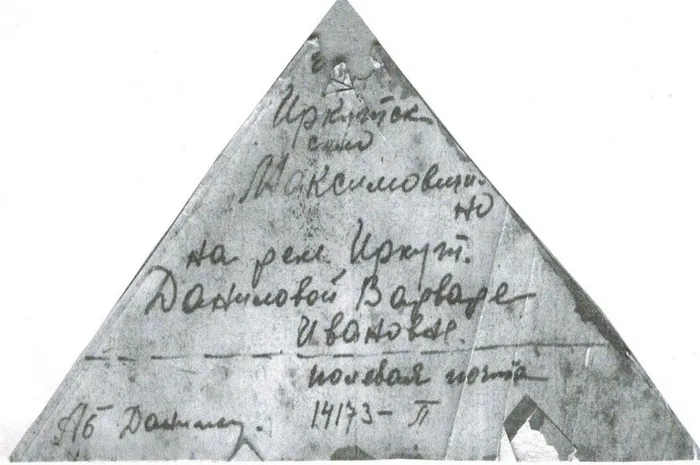 Иркутск
село
Максимовщи-
но
на реке Иркут.
Даниловой Варваре
Ивановне.
полевая почта
АБ Данилов. 14173 – П